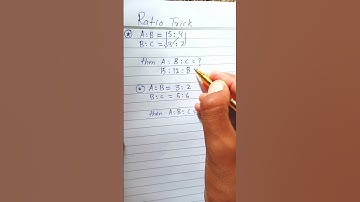 Ratio Trick
A:B = 5:4
B:C = 3:2
then A:B:C = ?
15:12:8
A:B = 3:2
B:C = 5:6
then A:B:C =